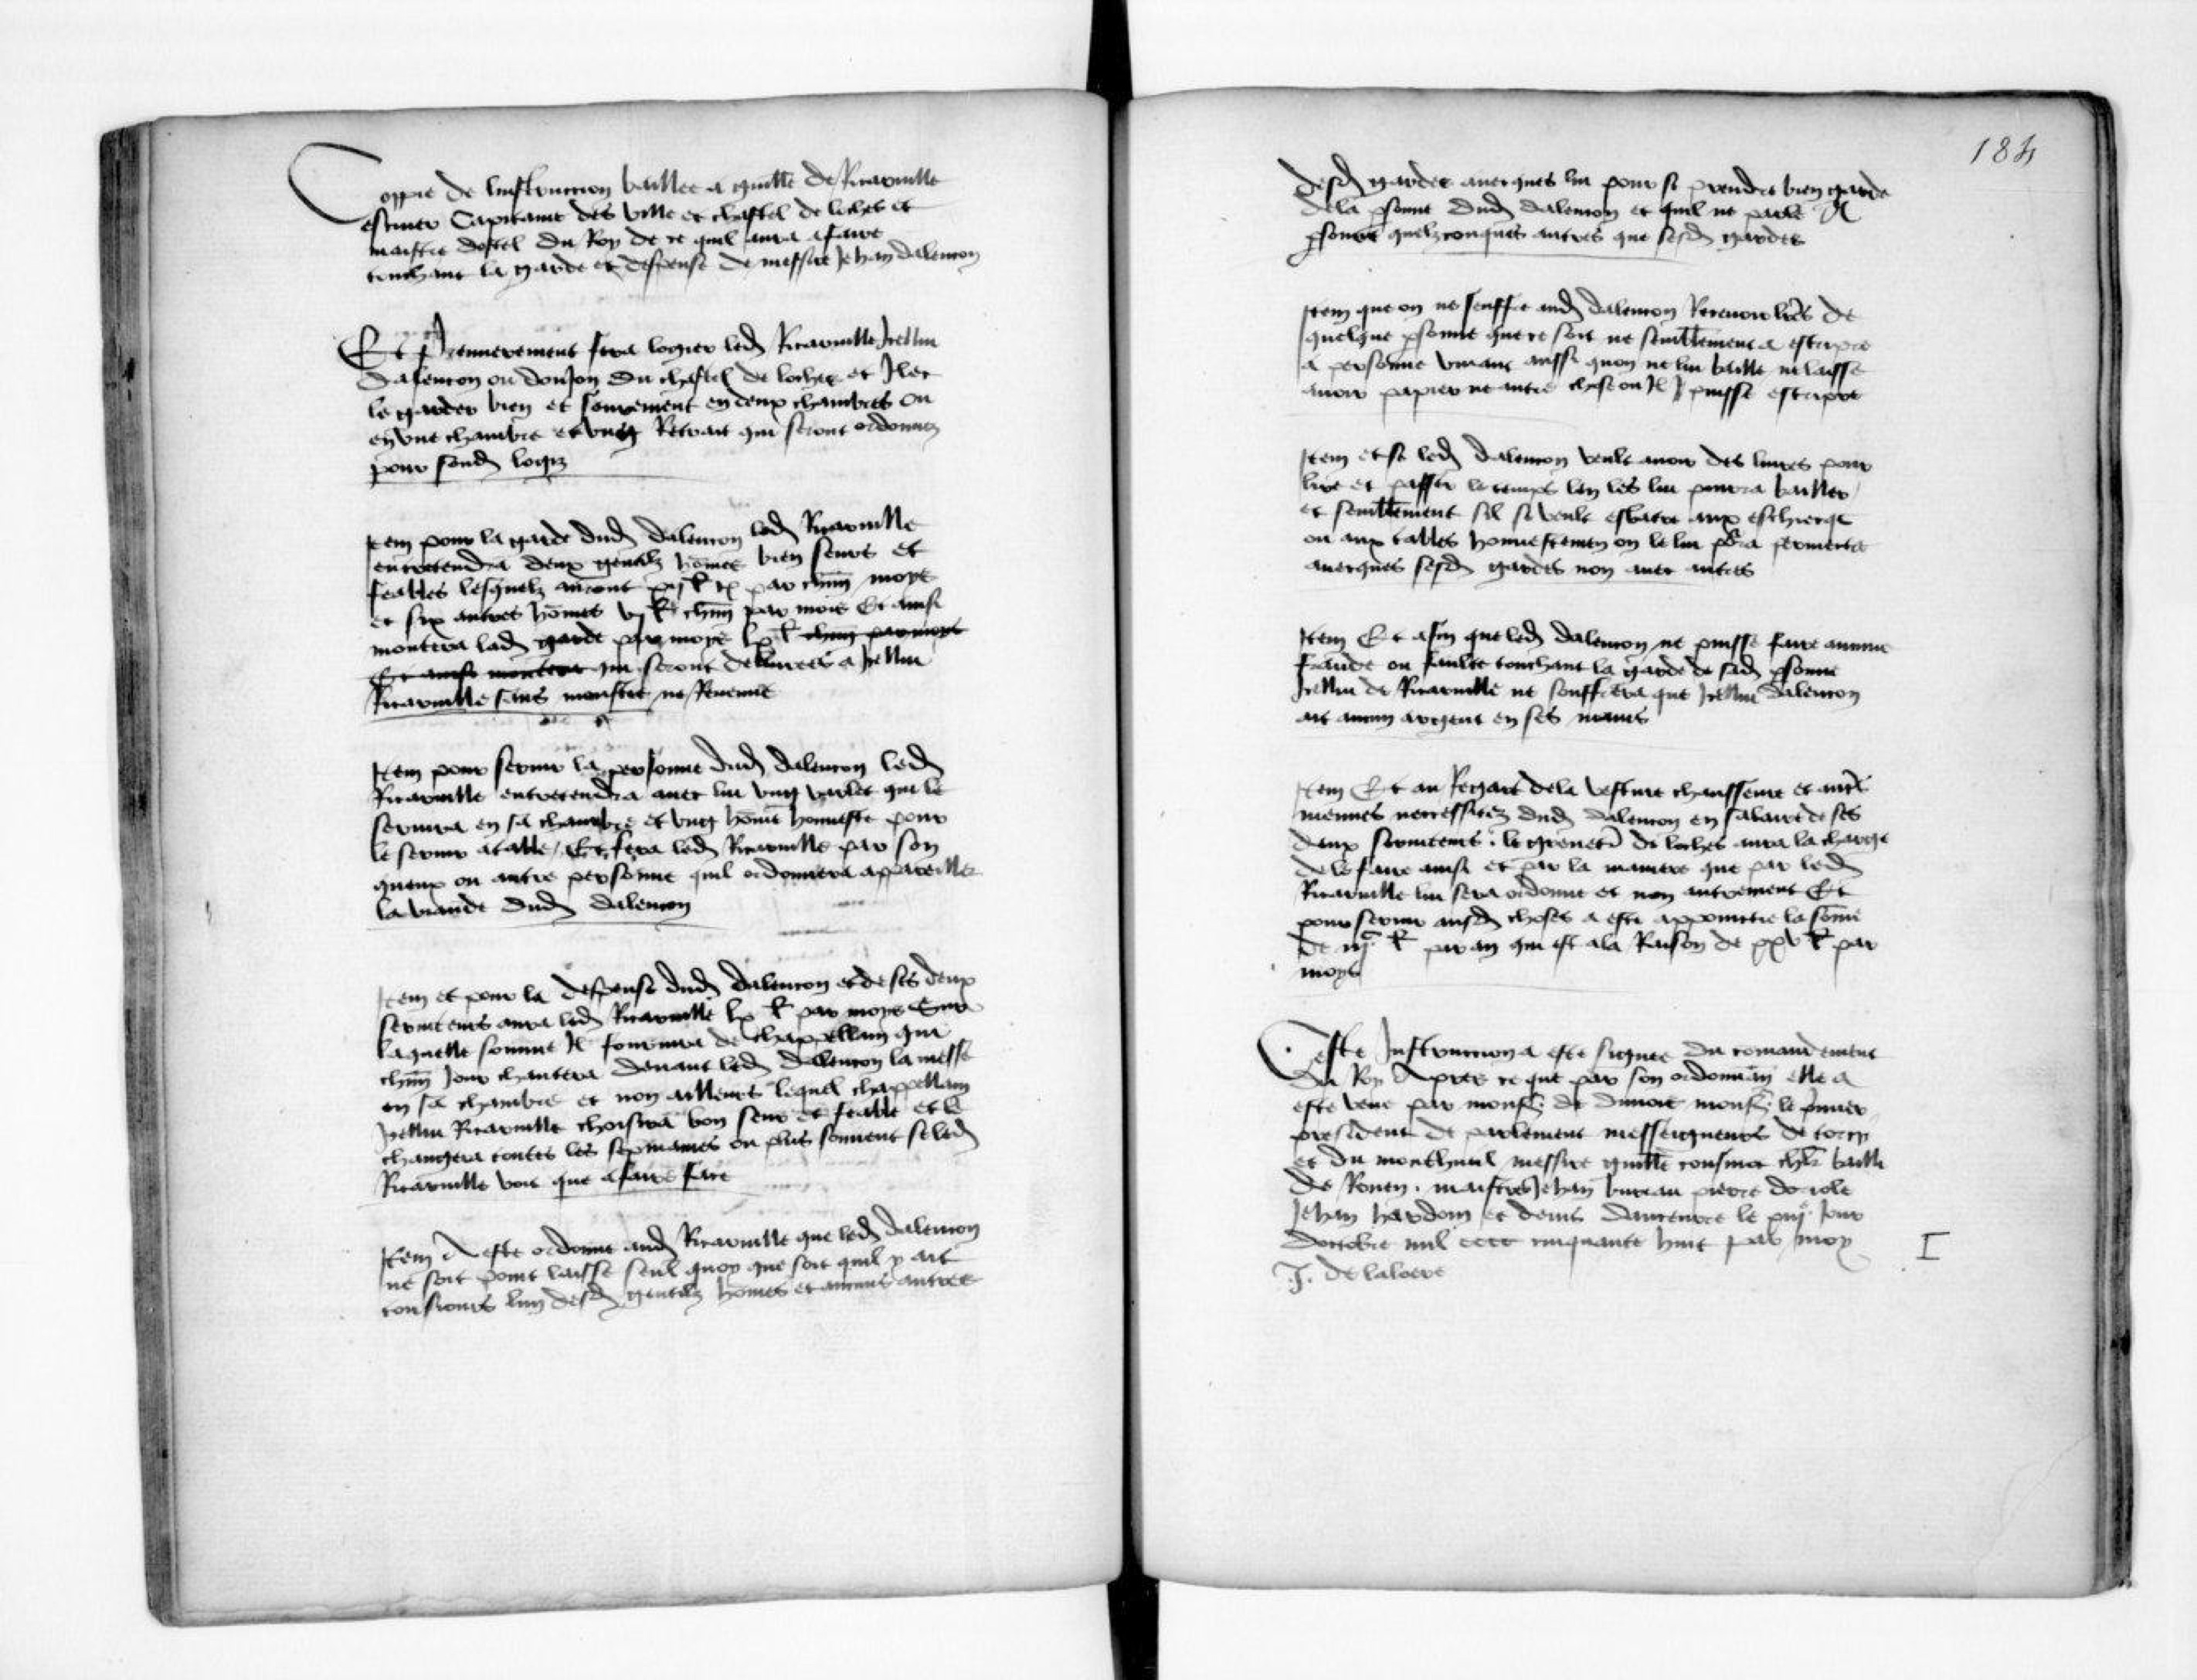 Coppie de linstruccion baillee a guille de Ricarville
escuier Cappitaine des ville et chastel de loches et
maistre dostel du Roy de ce quil aura afaire
touchant la garde et despense de messire Jehan dalencon
Et Premierement fera logier led Ricarville Icellui
dalencon ou donJon du chastel de loches et Ilec
le garder bien et seurement en deux chambres ou
en une chambre et ung Retrait qui seront ordonnez
pour sond logiz
Item pour la garde dud dalencon led Ricarville
entretendra deux gentilz homes bien seurs et
feables lesquelz auront par chun moys
et six autres homes chun par mois Et ainsi
montera lad garde par moys lx chun par moys
Et ainsi montera qui seront delivrees a Icellui
Ricarville sans monstre ne Revenue
Item pour servir la personne dud dalencon led
Ricarville entretendra avec lui ung varlet qui le
servira en sa chambre et ung home honneste pour
le servir atable / Et fera led Ricarville par son
queux ou autre personne quil ordonnera appareiller
la viande dud dalencon
Item et pour la despense dud dalencon et de ses deux
serviteurs aura led Ricarville lx par moys Sur
laquelle somme Il fournira de chappellain qui
chun Jour chantera devant led dalencon la messe
en sa chambre et non ailleurs lequel chappellain
Icellui Ricarville choisira bon seur et feable et le
changera toutes les sepmaines ou plus souvent se led
Ricarville voit que afaire face
Item A este ordonne aud Ricarville que led dalencon
ne soit point laisse seul quoy que soit quil y ait
tousiours lun desd gentilz homes et aucuns autres
184
desd gardes avecques lui pour si prendre bien garde
dela psonne dud dalencon et quil ne parle A
psonne quelzconques autres que sesd gardes
Item que on ne seuffre aud dalencon Recevoir lres de
quelque psonne que ce soit ne semblement a escripre
a personne vivant aussi quon ne lui baille ne laisse
avoir papier ne autre chose ou Il I puisse escripre
Item et se led dalencon veult avoir des livres pour
lire et passer le temps len les lui pourra bailler /
et semblement sil se veult esbatre aux eschiecqs
ou aux tables honnestemen on le lui pora permectre
avecques sesd gardes non avec autres
Item Et afin que led dalencon ne puisse faire aucune
fraude ou faulte touchant la garde de sad psonne
Icellui de Ricarville ne souffrera que Icellui dalencon
ait aucun argent en ses mains
Item Et au Regart dela vesture chausseure et autres
menues neccessitez dud dalencon en salaire de ses
deux serviteurs . le grenetier de loches aura la charge
de le faire ainsi et par la maniere que par led
Ricarville lui sera ordonne et non autrement Et
pour servir ausd choses a este appoinctie la some
de iijc par an qui est ala Raison de xxv par
moys
Ceste Instruccion a este signee du comandement
du Roy Apres ce que par son ordonnan elle a
este veue par monsr de dunois monsr le pmier
president de parlement messeigneurs de torcy
et du monteuil messire guille cousinot chlr bailli
de Rouen . maistres Jehan bureau pierre doriole
Jehan hardoin et denis dauxeurre le Jour
doctobre mil cccc cinquante huit par moy
J. de laloere